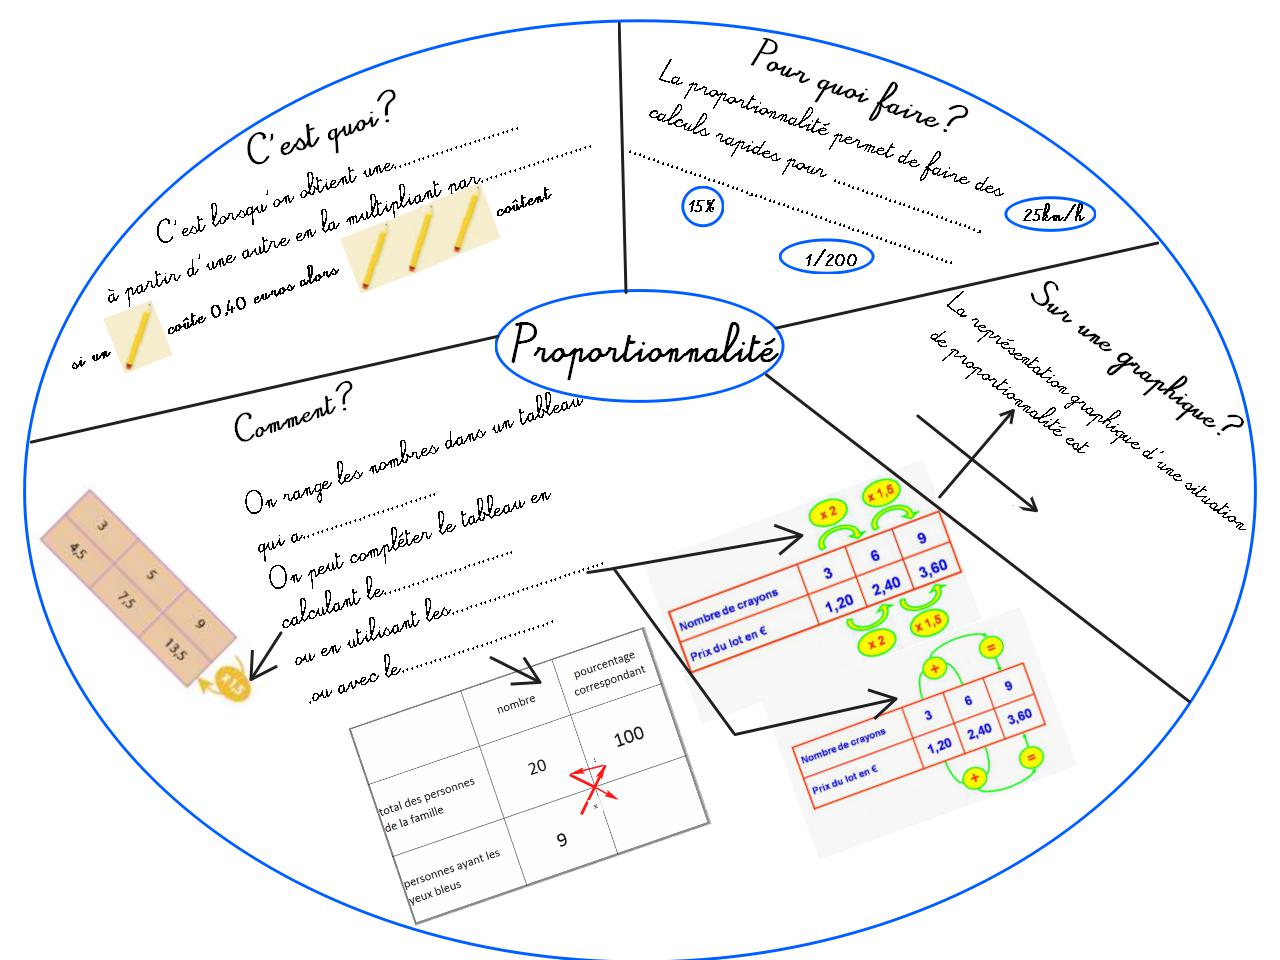 C'est quoi?
C'est lorsqu'on obtient une....................
à partir d'une autre en la multipliant par....................
si un coûte 0,40 euros alors coûtent
Pour quoi faire?
La proportionnalité permet de faire des
calculs rapides pour ....................
....................
15%
1/200
25km/h
Proportionnalité
Sur une graphique?
La représentation graphique d'une situation
de proportionnalité est
Comment?
On range les nombres dans un tableau
qui a....................
On peut compléter le tableau en
calculant le....................
ou en utilisant les....................
.ou avec le....................
3 5 9
4,5 7,5 13,5
x1,5
x 2 x 1,5
Nombre de crayons 3 6 9
Prix du lot en € 1,20 2,40 3,60
x 2 x 1,5
+ =
Nombre de crayons 3 6 9
Prix du lot en € 1,20 2,40 3,60
+ =
nombre pourcentage
correspondant
total des personnes
de la famille 20 100
:
x
personnes ayant les
yeux bleus 9